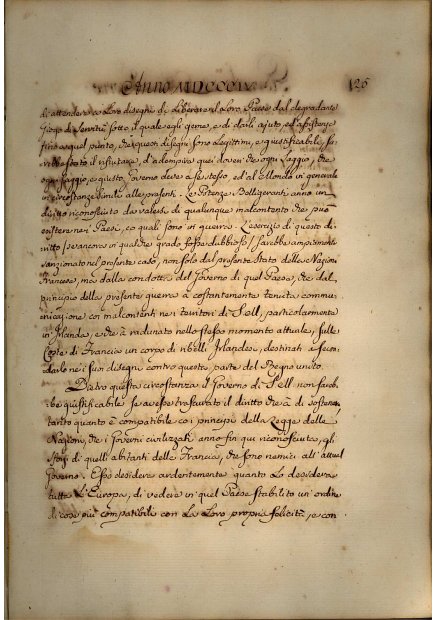 Anno MDCCCIV.
126
di attendere a Loro disegni di Liberare il Loro Paese dal degradante
Giogo di Servitù sotto il quale egli geme, e di darli ajuto, ed assistenze
fino a quel punto, che questi disegni sono Legittimi, e giustificabili, sa-
rebbe stato il rifiutare, d'adempire quei doveri che ogni Saggio, che
ogni saggio, e giusto Governo deve a se stesso, ed al Mondo in generale
in circostanze simili alle presenti. Le Potenze Belligeranti anno un
diritto riconosciuto da valersi di qualunque malcontento che può
esistere nei Paesi, co quali sono in guerra. L'esercizio di questo di-
ritto (se ancora in qualche grado fosse dubbioso) sarebbe ampiamente
sanzionato nel presente caso, non solo dal presente Stato della Nazione
Francese, ma dalla condotta del Governo di quel Paese, che dal
principio della presente guerra à costantemente tenuta commu-
nicazione coi malcontenti nei territori di S. M., particolarmente
in Irlanda, e che à radunato nello stesso momento attuale, sulle
Coste di Francia un corpo di ribelli Irlandesi, destinati a secon-
darlo nei suoi disegni contro questa parte del Regno unito.
Dietro questa circostanza il Governo di S. M. non sareb-
be giustificabile se avesse trascurato il diritto che à di sostenere,
tanto quanto è compatibile coi principj della Legge delle
Nazioni, che i Governi civilizzati anno fin qui riconosciuta, gli
sforzi di quelli abitanti della Francia, che sono nemici all'attual
Governo. Esso desidera ardentemente quanto Lo desidera
tutta L'Europa, di vedere in quel Paese stabilito un'ordine
di cose più compatibile con La Loro propria felicità, e con